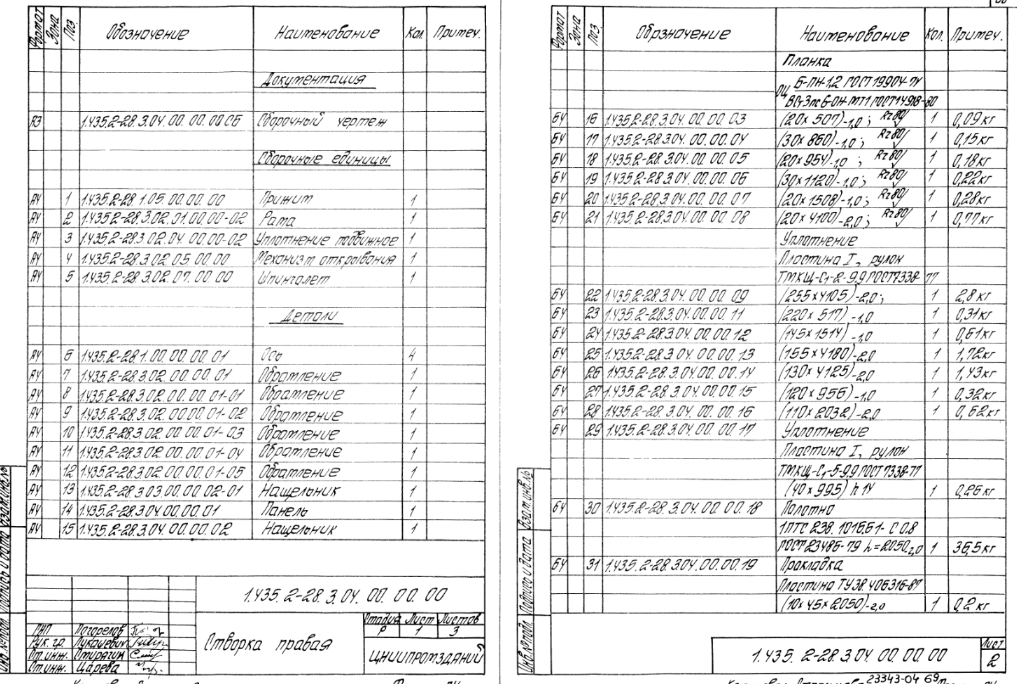 Формат Зона Поз Обозначение Наименование Кол Примеч.
Документация
А3 1.435.2-28.3.04.00.00.00СБ Сборочный чертеж
Сборочные единицы
А4 1 1.435.2-28.1.05.00.00.00 Прижим 1
А4 2 1.435.2-28.3.02.01.00.00-02 Рама 1
А4 3 1.435.2-28.3.02.04.00.00-02 Уплотнение подвижное 1
А4 4 1.435.2-28.3.02.05.00.00 Механизм открывания 1
А4 5 1.435.2-28.3.02.07.00.00 Шпингалет 1
Детали
А4 6 1.435.2-28.1.00.00.00.01 Ось 4
А4 7 1.435.2-28.3.02.00.00.01 Обрамление 1
А4 8 1.435.2-28.3.02.00.00.01-01 Обрамление 1
А4 9 1.435.2-28.3.02.00.00.01-02 Обрамление 1
А4 10 1.435.2-28.3.02.00.00.01-03 Обрамление 1
А4 11 1.435.2-28.3.02.00.00.01-04 Обрамление 1
А4 12 1.435.2-28.3.02.00.00.01-05 Обрамление 1
А4 13 1.435.2-28.3.03.00.00.02-01 Нащельник 1
А4 14 1.435.2-28.3.04.00.00.01 Панель 1
А4 15 1.435.2-28.3.04.00.00.02 Нащельник 1
1.435.2-28.3.04.00.00.00
Створка правая
Стадия Лист Листов
Р 1 3
ЦНИИПРОМЗДАНИЙ
ГИП Погорелов
Рук. гр. Лукашевич
Ст. инж. Смирягин
Ст. инж. Царева
Формат Зона Поз Обозначение Наименование Кол. Примеч.
Планка
ОЦ Б-ПН-1,2 ГОСТ 19904-74
ВСт3пс6-ОН-МТ1 ГОСТ 14918-80
БЧ 16 1.435.2-28.3.04.00.00.03 (20х507)-1,0; Rz80 1 0,09кг
БЧ 17 1.435.2-28.3.04.00.00.04 (30х860)-1,0; Rz80 1 0,15кг
БЧ 18 1.435.2-28.3.04.00.00.05 (20х954)-1,0; Rz80 1 0,18кг
БЧ 19 1.435.2-28.3.04.00.00.06 (30х1120)-1,0; Rz80 1 0,22кг
БЧ 20 1.435.2-28.3.04.00.00.07 (20х1508)-1,0; Rz80 1 0,28кг
БЧ 21 1.435.2-28.3.04.00.00.08 (20х4100)-2,0; Rz80 1 0,77кг
Уплотнение
Пластина I, рулон
ТМКЩ-С1-2-9,9 ГОСТ 7338-77
БЧ 22 1.435.2-28.3.04.00.00.09 (255х4105)-2,0; 1 2,8кг
БЧ 23 1.435.2-28.3.04.00.00.11 (220х517)-1,0 1 0,31кг
БЧ 24 1.435.2-28.3.04.00.00.12 (145х1514)-1,0 1 0,61кг
БЧ 25 1.435.2-28.3.04.00.00.13 (155х4180)-2,0 1 1,72кг
БЧ 26 1.435.2-28.3.04.00.00.14 (130х4125)-2,0 1 1,43кг
БЧ 27 1.435.2-28.3.04.00.00.15 (120х956)-1,0 1 0,32кг
БЧ 28 1.435.2-28.3.04.00.00.16 (110х2032)-2,0 1 0,62кг
БЧ 29 1.435.2-28.3.04.00.00.17 Уплотнение
Пластина I, рулон
ТМКЩ-С1-5-9,9 ГОСТ 7338-77
(40х995) h14 1 0,26кг
БЧ 30 1.435.2-28.3.04.00.00.18 Полотно
1ПТС 238.1016.Б1-С 0,8
ГОСТ 23486-79 L=2050-2,0 1 36,5кг
БЧ 31 1.435.2-28.3.04.00.00.19 Прокладка
Пластина ТУ38.406316-87
(10х45х2050)-2,0 1 0,2кг
1.435.2-28.3.04.00.00.00
Лист
2
23343-04 69